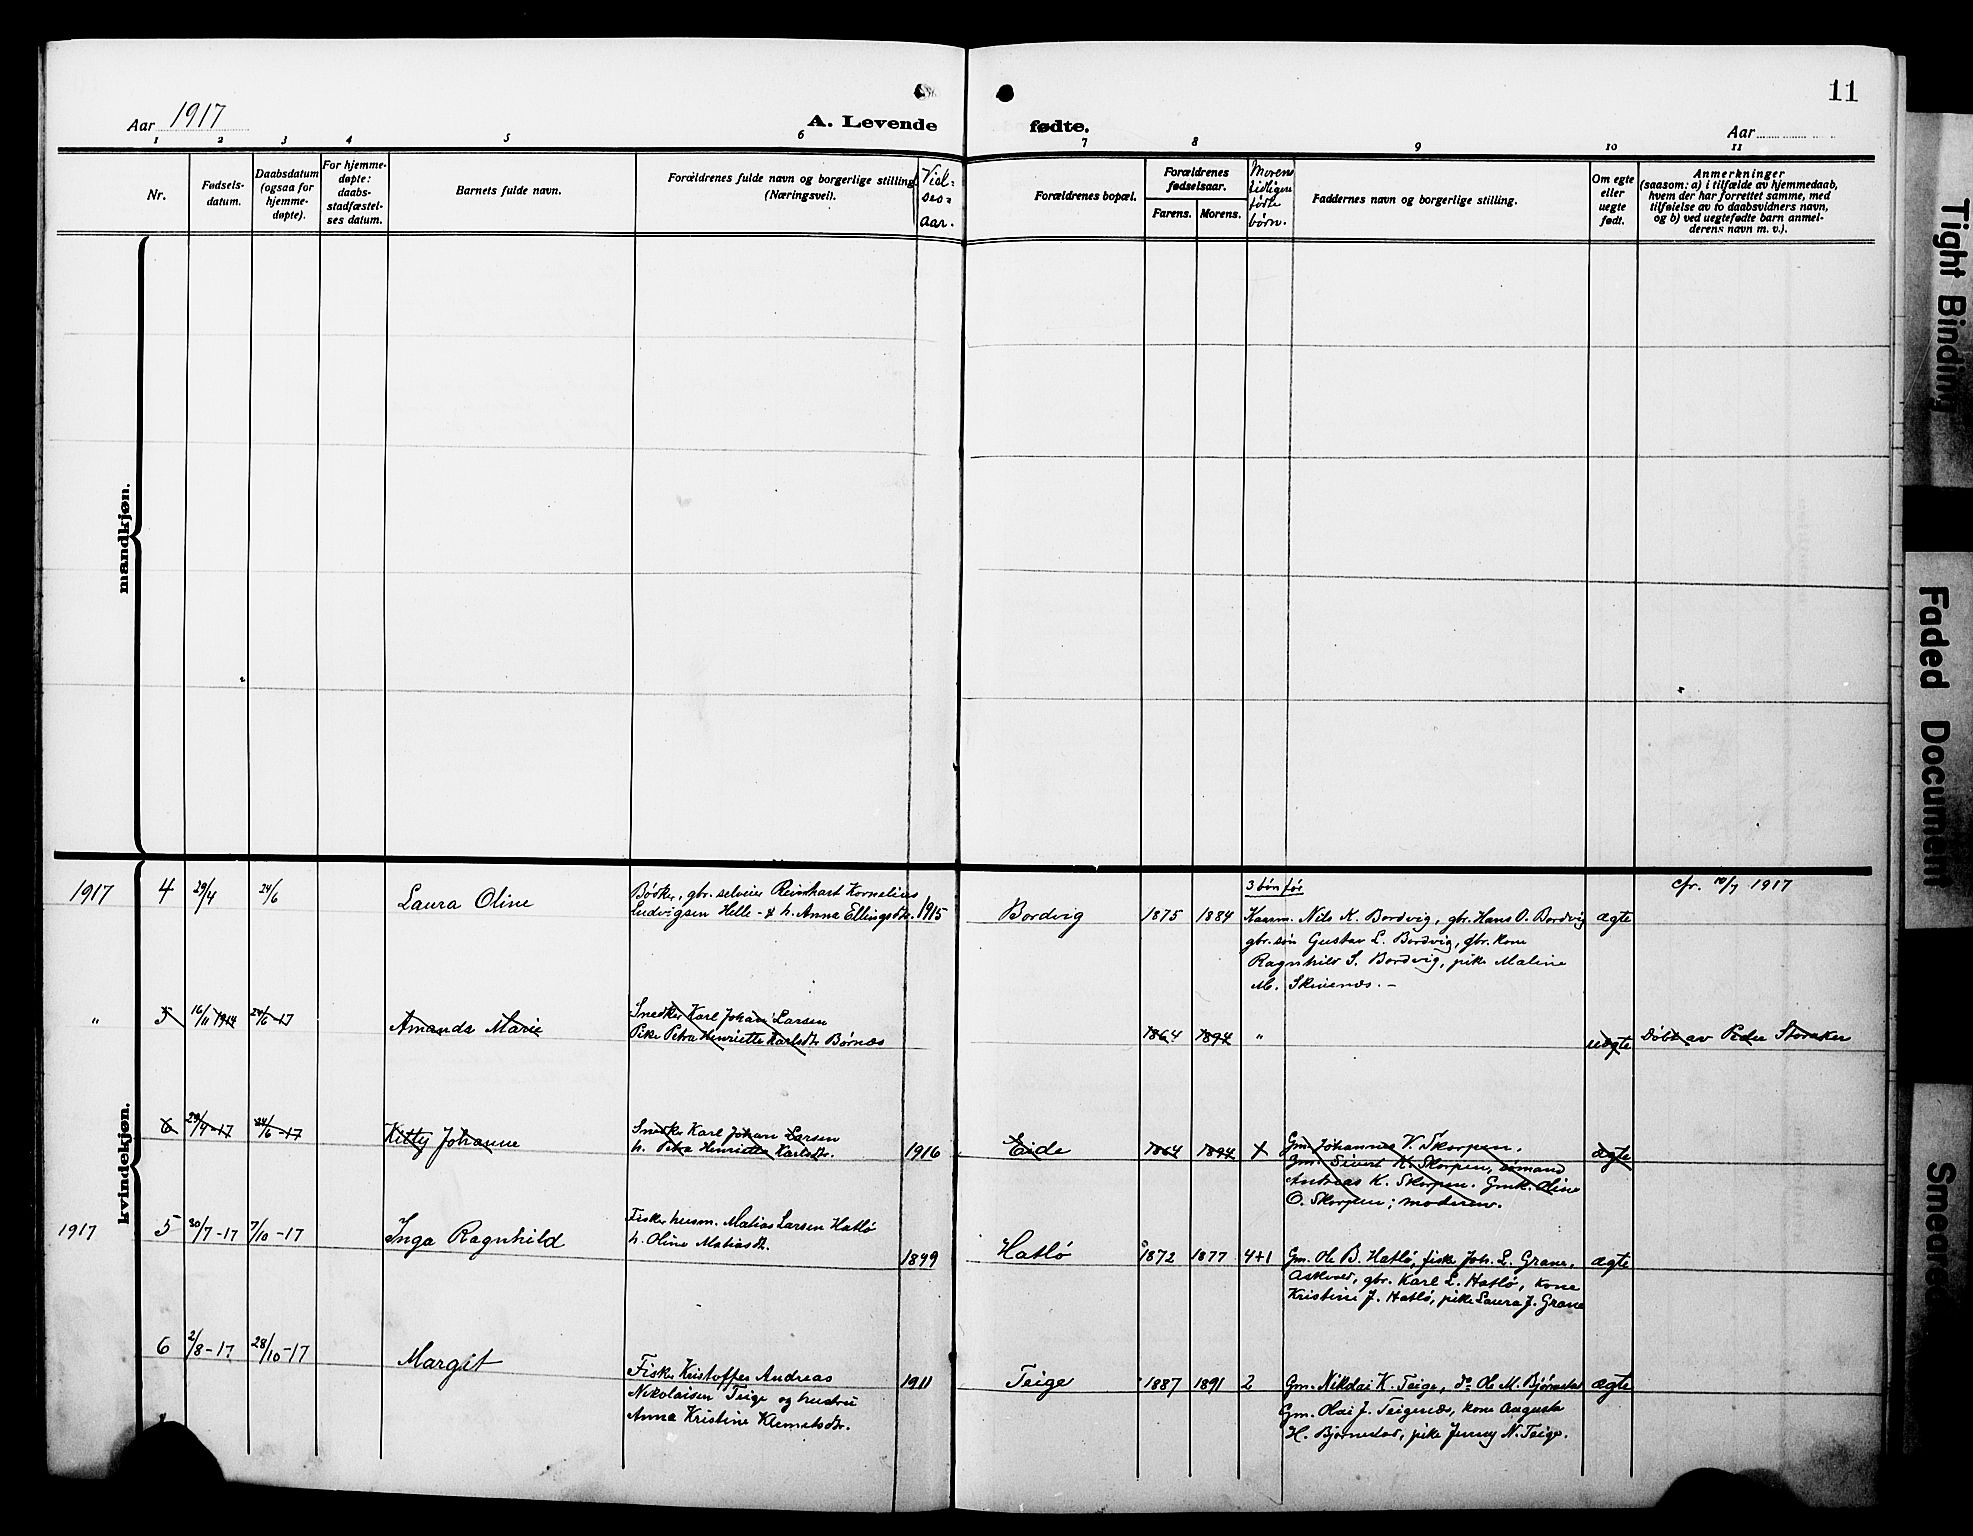 11
Aar 1917
A. Levende
fødte.
Aar
1 2 3 4 5 6 7 8 9 10 11
Nr.
Fødsels-
datum.
Daabsdatum
(ogsaa for
hjemme-
døpte).
For hjemme-
døpte:
daabs-
stadfæstel-
ses datum.
Barnets fulde navn.
Forældrenes fulde navn og borgerlige stilling
(Næringsvei).
Viel-
ses-
aar.
Forældrenes bopæl.
Forældrenes
fødselsaar.
Farens. Morens.
Morens
tidligere
fødte
børn.
Faddernes navn og borgerlige stilling.
Om egte
eller
uegte
født.
Anmerkninger
(saasom: a) i tilfælde av hjemmedaab,
hvem der har forrettet samme, med
tilføielse av to daabsvidners navn,
og b) ved uegtefødte barn anmel-
derens navn m. v.).
mandkjøn.
kvindekjøn.
1917 4 29/4 24/6
Laura Oline
Bødker, gbr. selveier Reinhart Kornelius
Ludvigsen Helle - & h. Anna Ellingsdtr. 1915
Bordvig 1875 1884
3 børn før
Kaarm. Nils K. Bordvig, gbr. Hans O. Bordvig
gbr. søn Gustav L. Bordvig, gbr. kone
Ragnhild S. Bordvig, pike Maline
M. Skivenes. -
ægte
cfr. 10/7 1917
" 5 16/11 1914 24/6-17
Amanda Marie
Snedker Karl Johan Larsen
Pike Petra Henriette Karlsdtr. Børnæs
1864 1894 "
uægte
Døbt av Peder Storaker
6 29/4-17 24/6-17
Kitty Johanne
Snedker Karl Johan Larsen
h. Petra Henriette Karlsdtr. 1916
Eide 1864 1894
Gm. Johannes V. Skorpen.
Gm. Sivert K. Skorpen, sømand
Andreas K. Skorpen. Gmk. Oline
O. Skorpen; moderen.
ægte
1917 5 30/7-17 7/10-17
Inga Ragnhild
Fisker husm. Matias Larsen Hatlø
h. Oline Matiasdtr. 1899
Hatlø 1872 1877 4+1
Gm. Ole B. Hatlø, fisker Joh. L. Grane,
Askvoll, gbr. Karl L. Hatlø, kone
Kristine J. Hatlø, pike Laura J. Grane
ægte
6 2/8-17 28/10-17
Margit
Fisker Kristoffer Andreas
Nikolaisen Teige og hustru
Anna Kristine Klemetsdtr. 1911
Teige 1887 1891 2
Gm. Nikolai K. Teige, do Ole M. Bjørnestad
Gm. Olai J. Teigenes, kone Augusta
H. Bjørnestad, pike Jenny N. Teige.
ægte
Tight Binding
Faded Document
Smeared